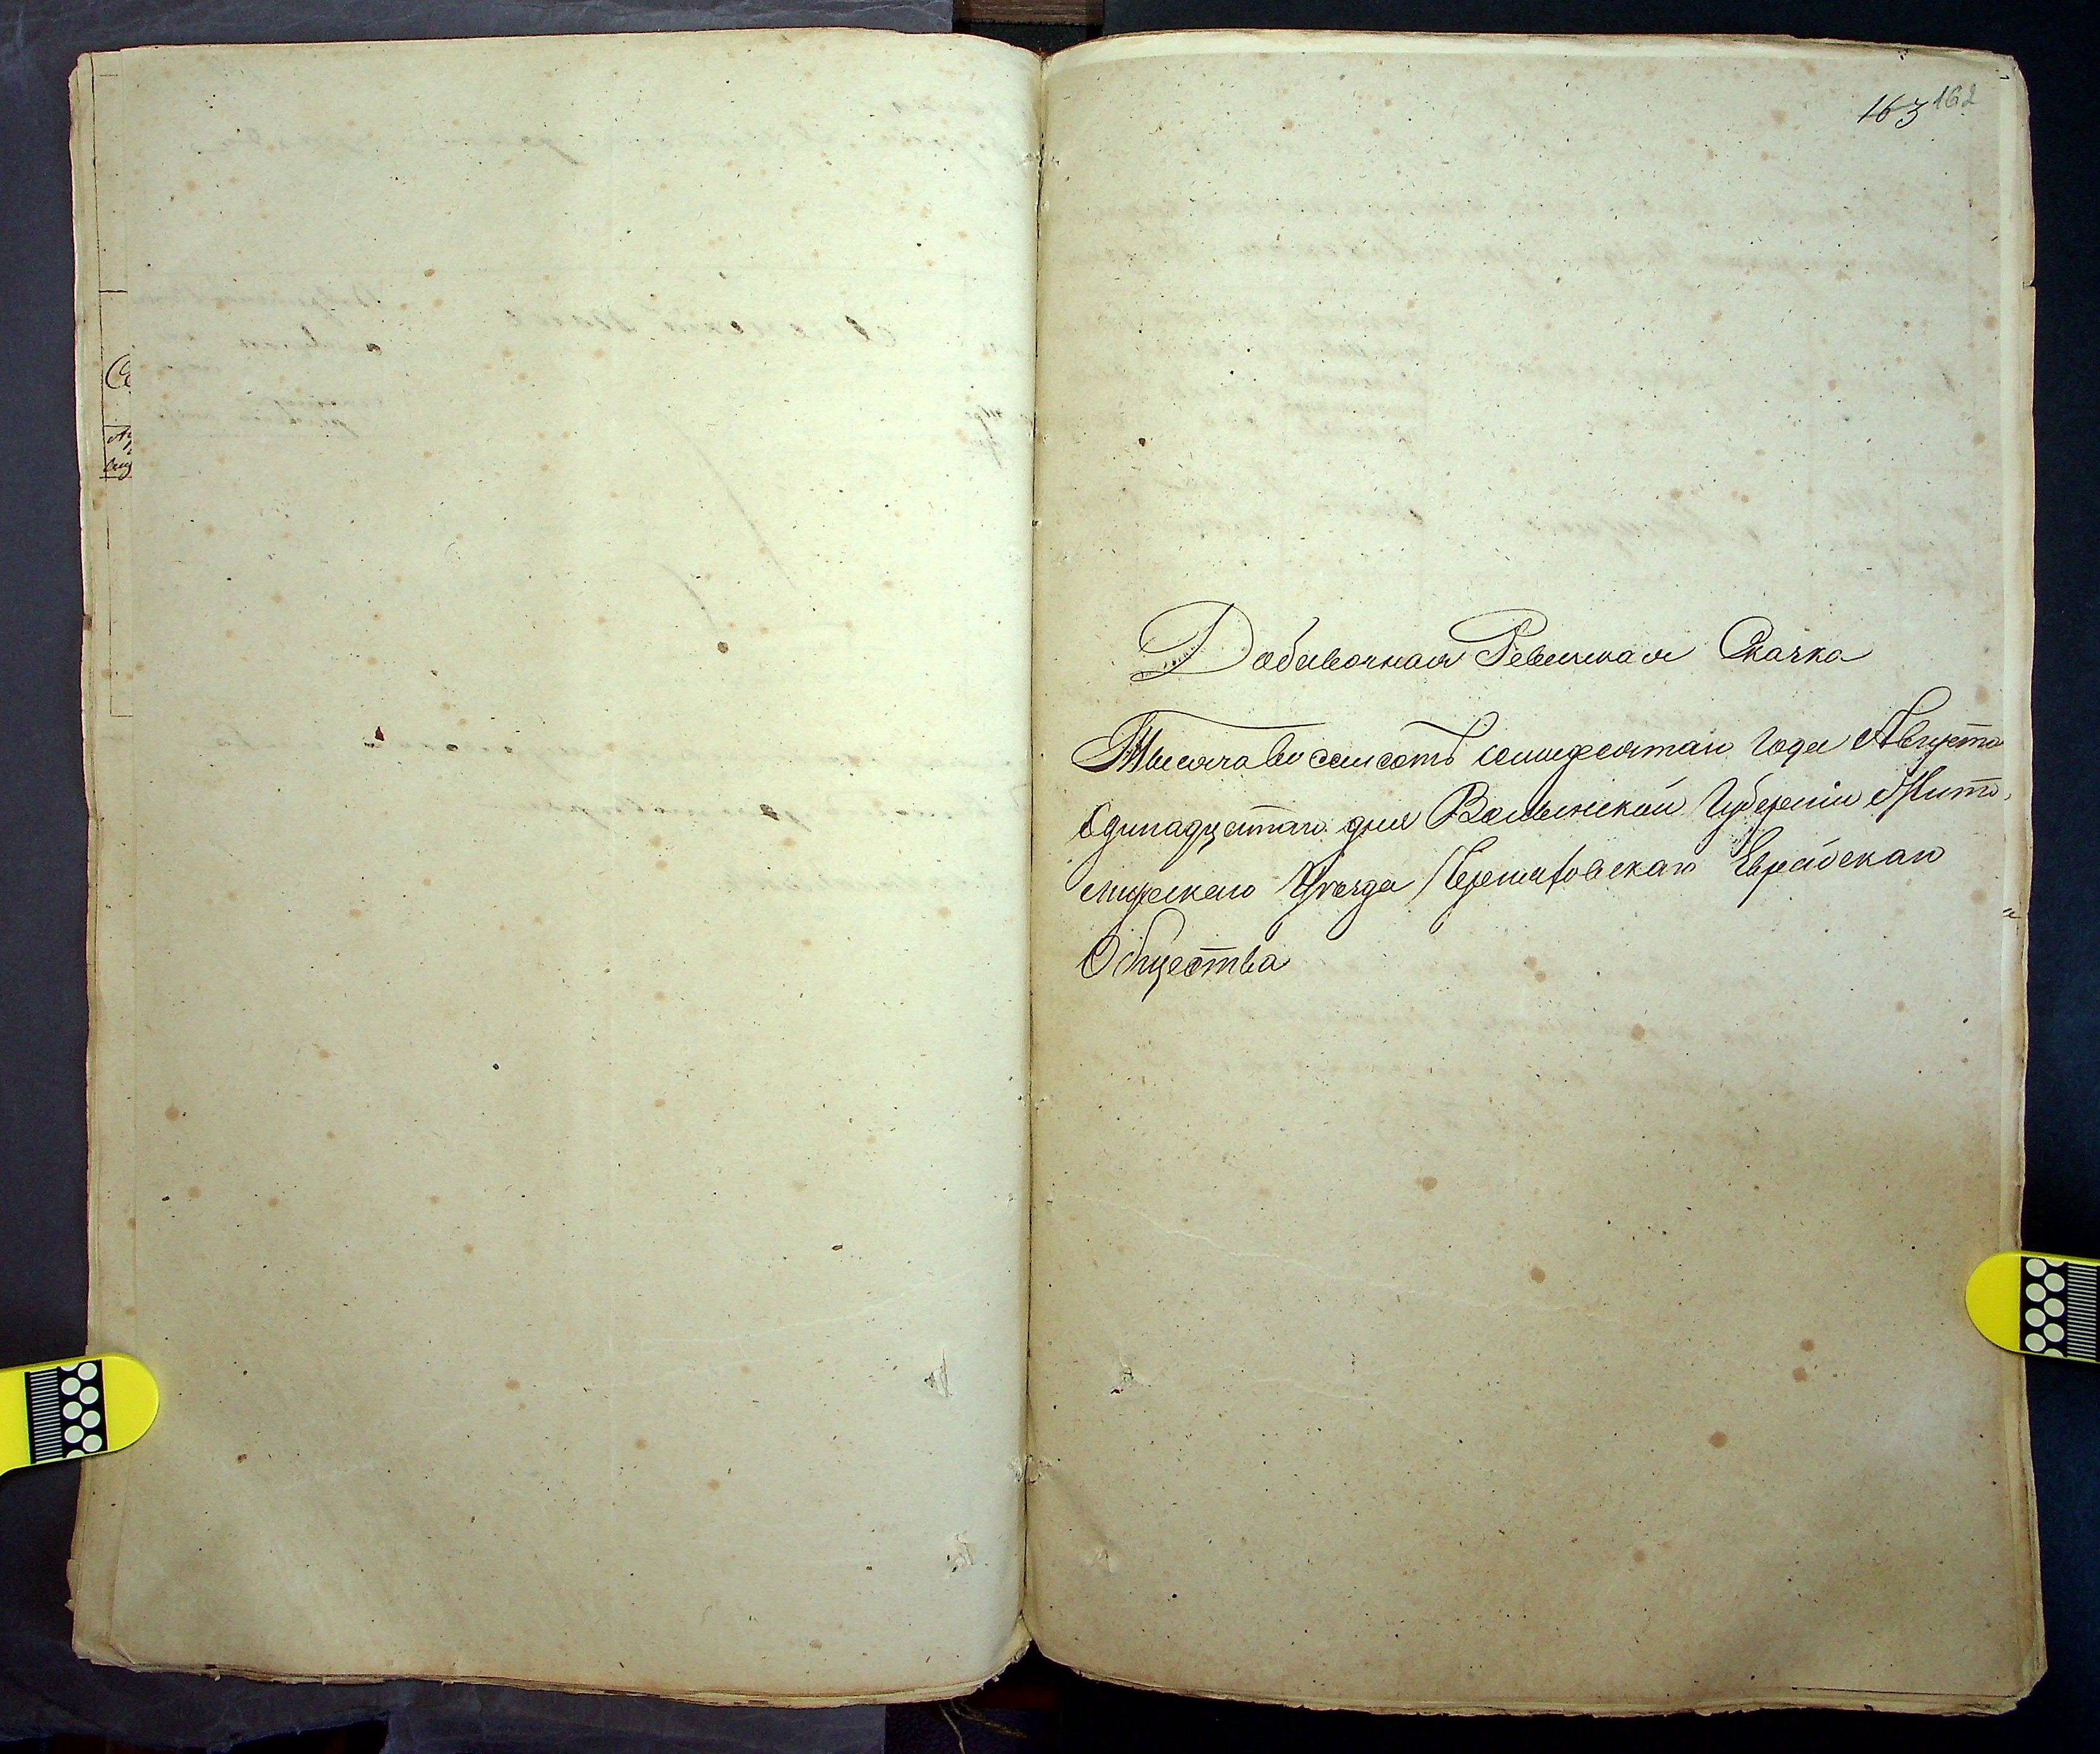 163 162
Добавочная Ревизская Сказка
Тысяча восемсотъ семидесятаго года Августа
Одинадцатаго дня Волынской Губерніи Жито-
мирскаго Уѣзда Еврейскаго
Общества